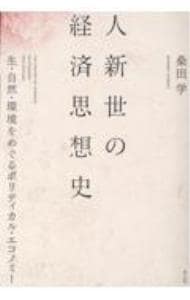 人新世の
経済思想史
桑田学
生・自然・環境をめぐるポリティカル・エコノミー